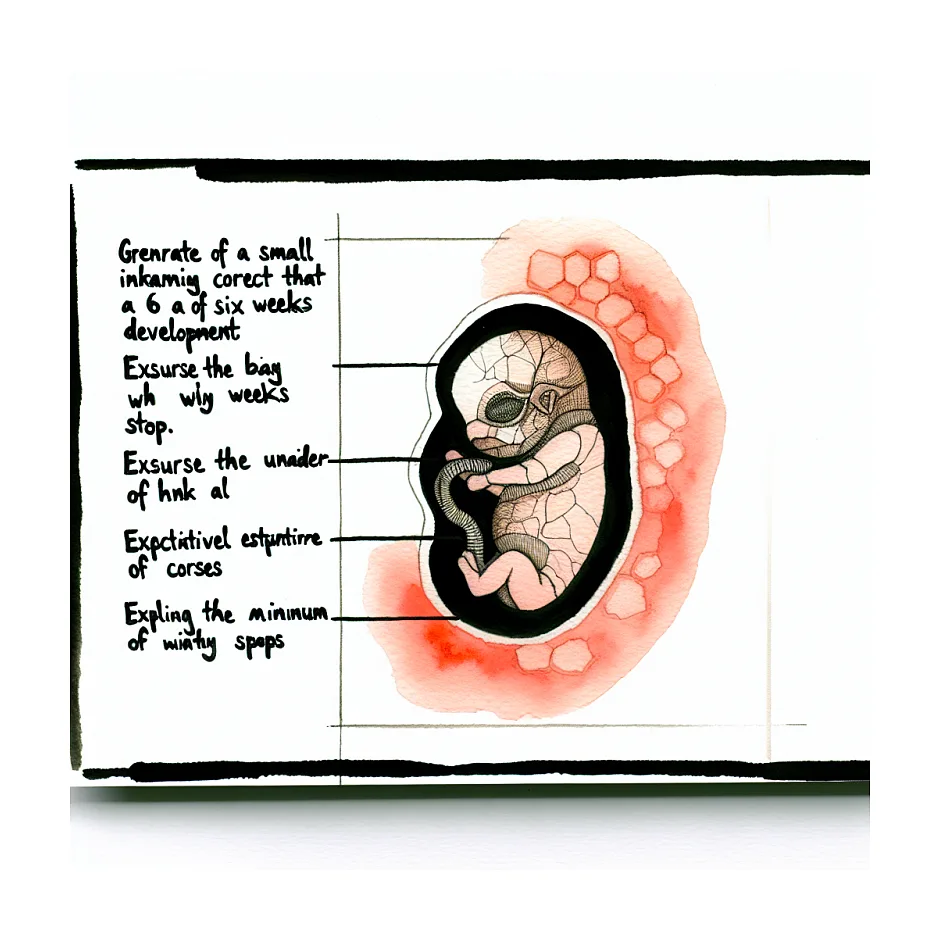 Grenrate of a small
inkamiņg corect that
a 6 a of six weeks
development
Exsurse the bàÿ
wh wlỳ weeks
stop.
Exsurse the unaider
of hnk al
Expctiativel
of corses
Expling the mininum
of spops